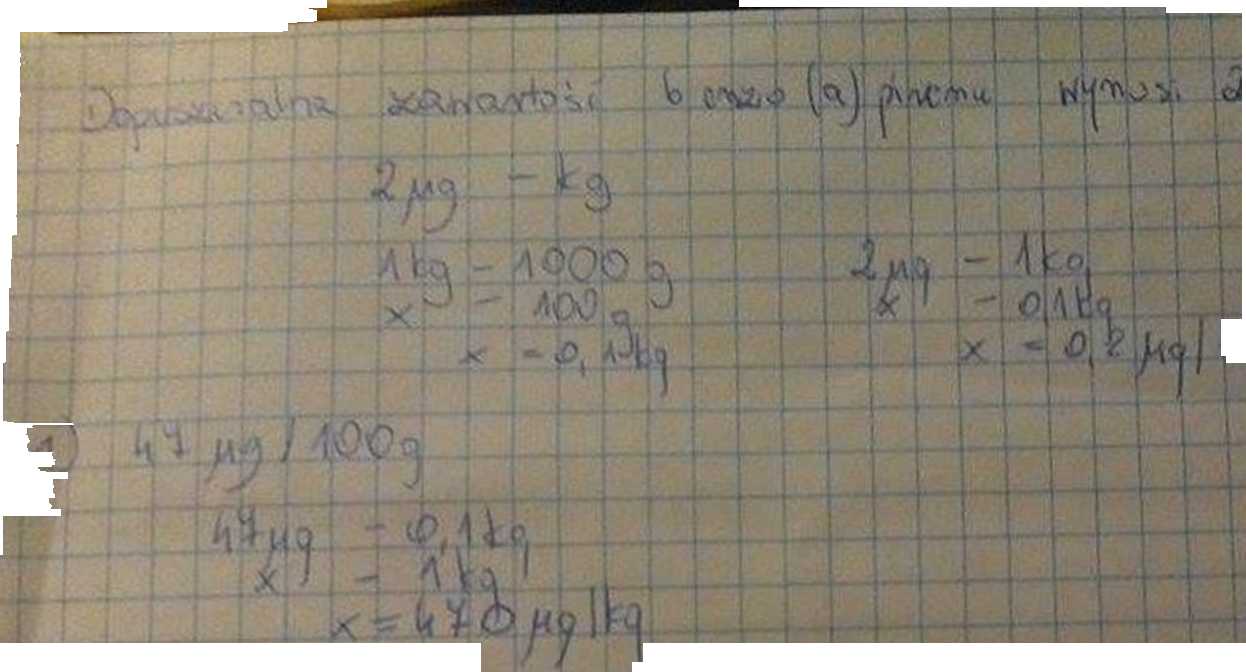 Dopuszczalna zawartość benzo(a)pirenu wynosi 2
2 µg - kg
1 kg - 1000 g
x - 100 g
x = 0,1 kg
2 µg - 1 kg
x - 0,1 kg
x = 0,2 µg/
1) 47 µg / 100g
47 µg - 0,1 kg
x - 1 kg
x = 470 µg/kg